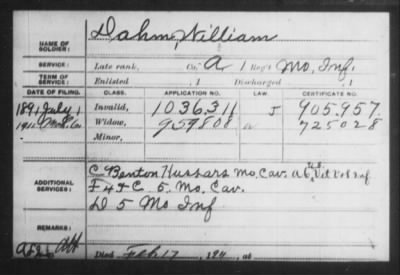 NAME OF SOLDIER: Dahm, William
SERVICE: Late rank, Co. A 1 Reg't Mo. Inf.
TERM OF SERVICE: Enlisted , 1 Discharged , 1
DATE OF FILING. CLASS. APPLICATION NO. LAW. CERTIFICATE NO.
1891, July 1 Invalid, 1036.311 J 905.957.
191 Widow, 959808 725028
Minor,
ADDITIONAL SERVICES: C Benton Hussars Mo. Cav. A 6, U.S. Vet Vol Inf
F 4 & C 5. Mo. Cav.
D 5 Mo Inf
REMARKS:
Died Feb 17, 191 , at